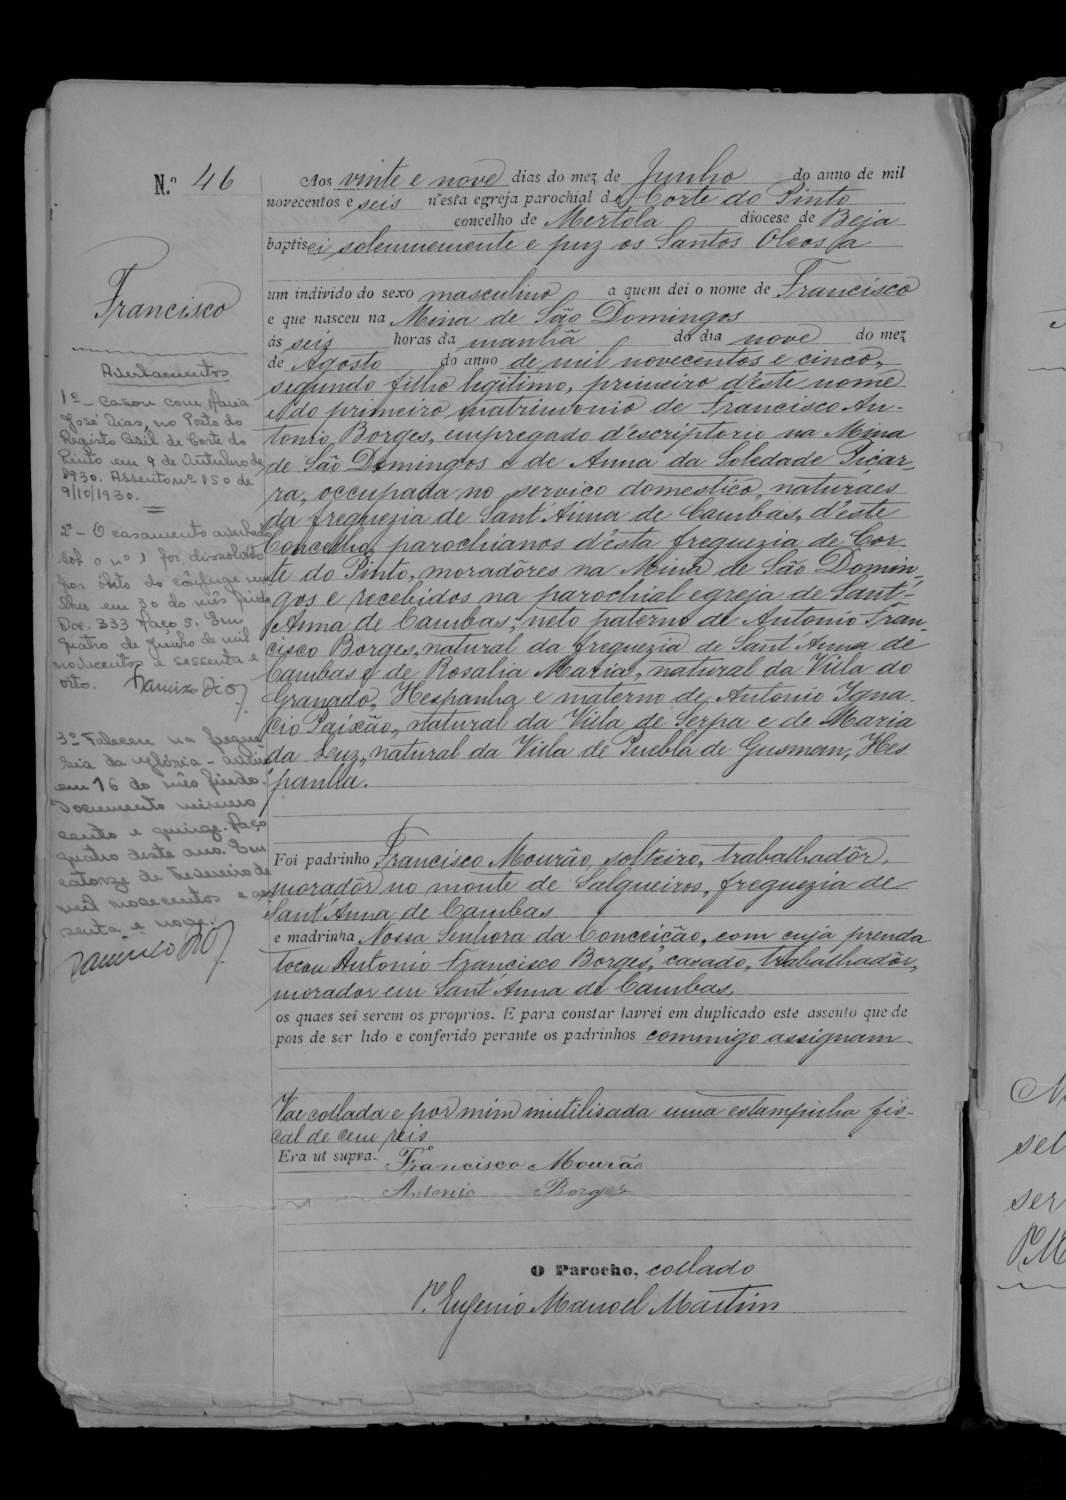 N.º 46
Francisco
Averbamentos
1º - Casou com Maria
José Dias, no Posto do
Registo Civil de Corte do
Pinto em 9 de Outubro de
1930. Assento nº 150 de
9/10/1930.
2º - O casamento averbado
sob o nº 1 foi dissolvido
por óbito do cônjuge mu
lher em 30 do mês findo
Doc. 333 Maço 5. Em
quatro de Junho de mil
novecentos e sessenta e
oito.
3º Faleceu na fregue
sia da
em 16 do mês findo.
Documento número
cento e quinze. Maço
quatro deste ano. Em
catorze de Fevereiro de
mil novecentos e ses
senta e nove.
Aos vinte e nove dias do mez de Junho do anno de mil
novecentos e seis n'esta egreja parochial de Corte do Pinto
concelho de Mertola diocese de Beja
baptisei solemnemente e puz os Santos Oleos a
um individo do sexo masculino a quem dei o nome de Francisco
e que nasceu na Mina de São Domingos
ás seis horas da manhã do dia nove do mez
de Agosto do anno de mil novecentos e cinco,
segundo filho legitimo, primeiro d'este nome
e do primeiro matrimonio de Francisco An-
tonio Borges, empregado d'escriptorio na Mina
de São Domingos e de Anna da Soledade Picar-
ra, occupada no serviço domestico, naturaes
da freguezia de Sant'Anna de Cambas, d'este
Concelho, parochianos d'esta freguezia de Cor-
te do Pinto, moradôres na Mina de São Domin-
gos e recebidos na parochial egreja de Sant'-
Anna de Cambas; neto paterno de Antonio Fran-
cisco Borges, natural da freguezia de Sant'Anna de
Cambas e de Rosalia Maria, natural da Villa do
Granado, Hespanha e materno de Antonio Igna-
cio Paixão, natural da Villa de Serpa e de Maria
da Luz, natural da Villa de Puebla de Gusman, Hes
panha.
Foi padrinho Francisco Mourão, solteiro, trabalhadôr,
moradôr no monte de Salgueiros, freguezia de
Sant'Anna de Cambas
e madrinha Nossa Senhora da Conceição, com cuja prenda
tocou Antonio Francisco Borges, casado, trabalhadôr,
morador em Sant'Anna de Cambas,
os quaes sei serem os proprios. E para constar lavrei em duplicado este assento que de
pois de ser lido e conferido perante os padrinhos commigo assignam
Vae collada e por mim inutilisada uma estampinha fis-
cal de cem reis
Era ut supra. Francisco Mourão
Antonio Borges
O Parocho, collado
Pe. Eugenio Manoel Martins